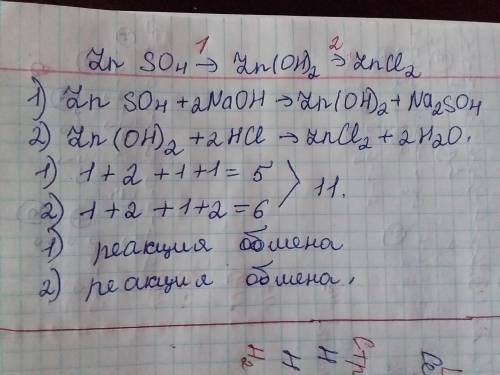 Zn SO4 →1 Zn(OH)2 →2 ZnCl2
1) Zn SO4 + 2NaOH → Zn(OH)2 + Na2SO4
2) Zn(OH)2 + 2HCl → ZnCl2 + 2H2O.
1) 1 + 2 + 1 + 1 = 5
2) 1 + 2 + 1 + 2 = 6 > 11.
1) реакция обмена
2) реакция обмена.
H2 H H